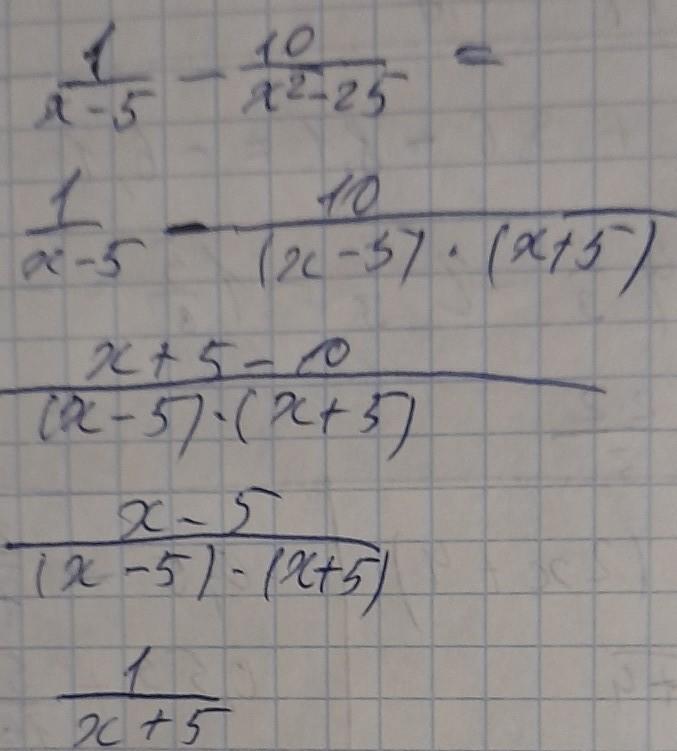 1/(x-5) - 10/(x²-25) =
1/(x-5) - 10/((x-5)·(x+5))
(x+5-10)/((x-5)·(x+5))
(x-5)/((x-5)-(x+5))
1/(x+5)